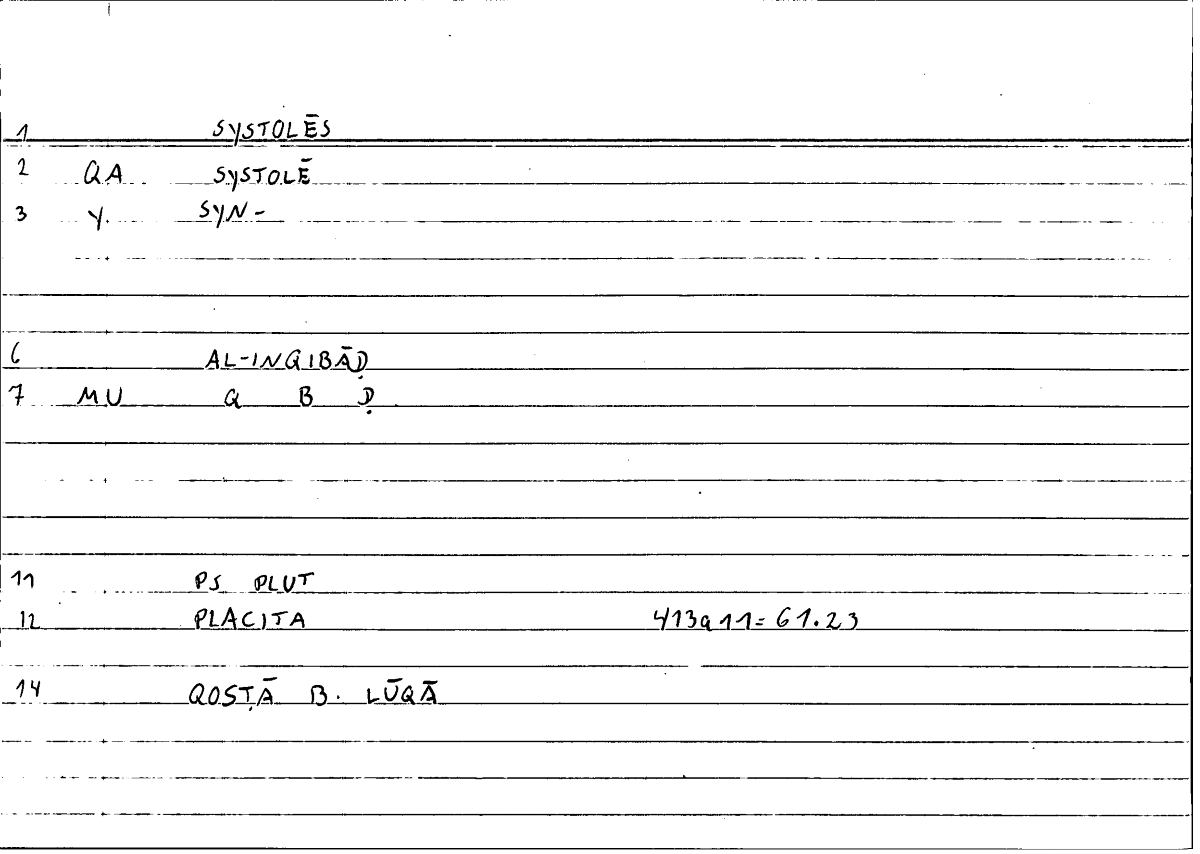 1 SYSTOLĒS
2 QA SYSTOLĒ
3 Y. SYN-
6 AL-INQIBĀḌ
7 MU Q B Ḍ
11 PS PLUT
12 PLACITA 413a11=61.23
14 QOSṬĀ B. LŪQĀ